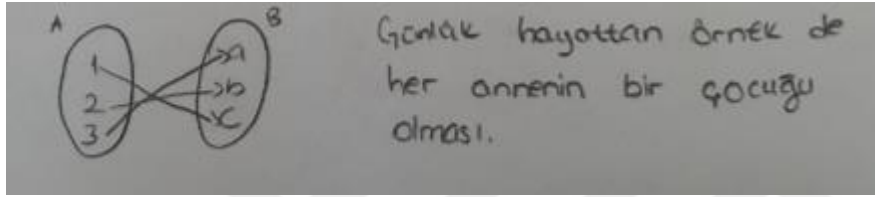 A B
1 a
2 b
3 c
Günlük hayattan örnek de
her annenin bir çocuğu
olması.